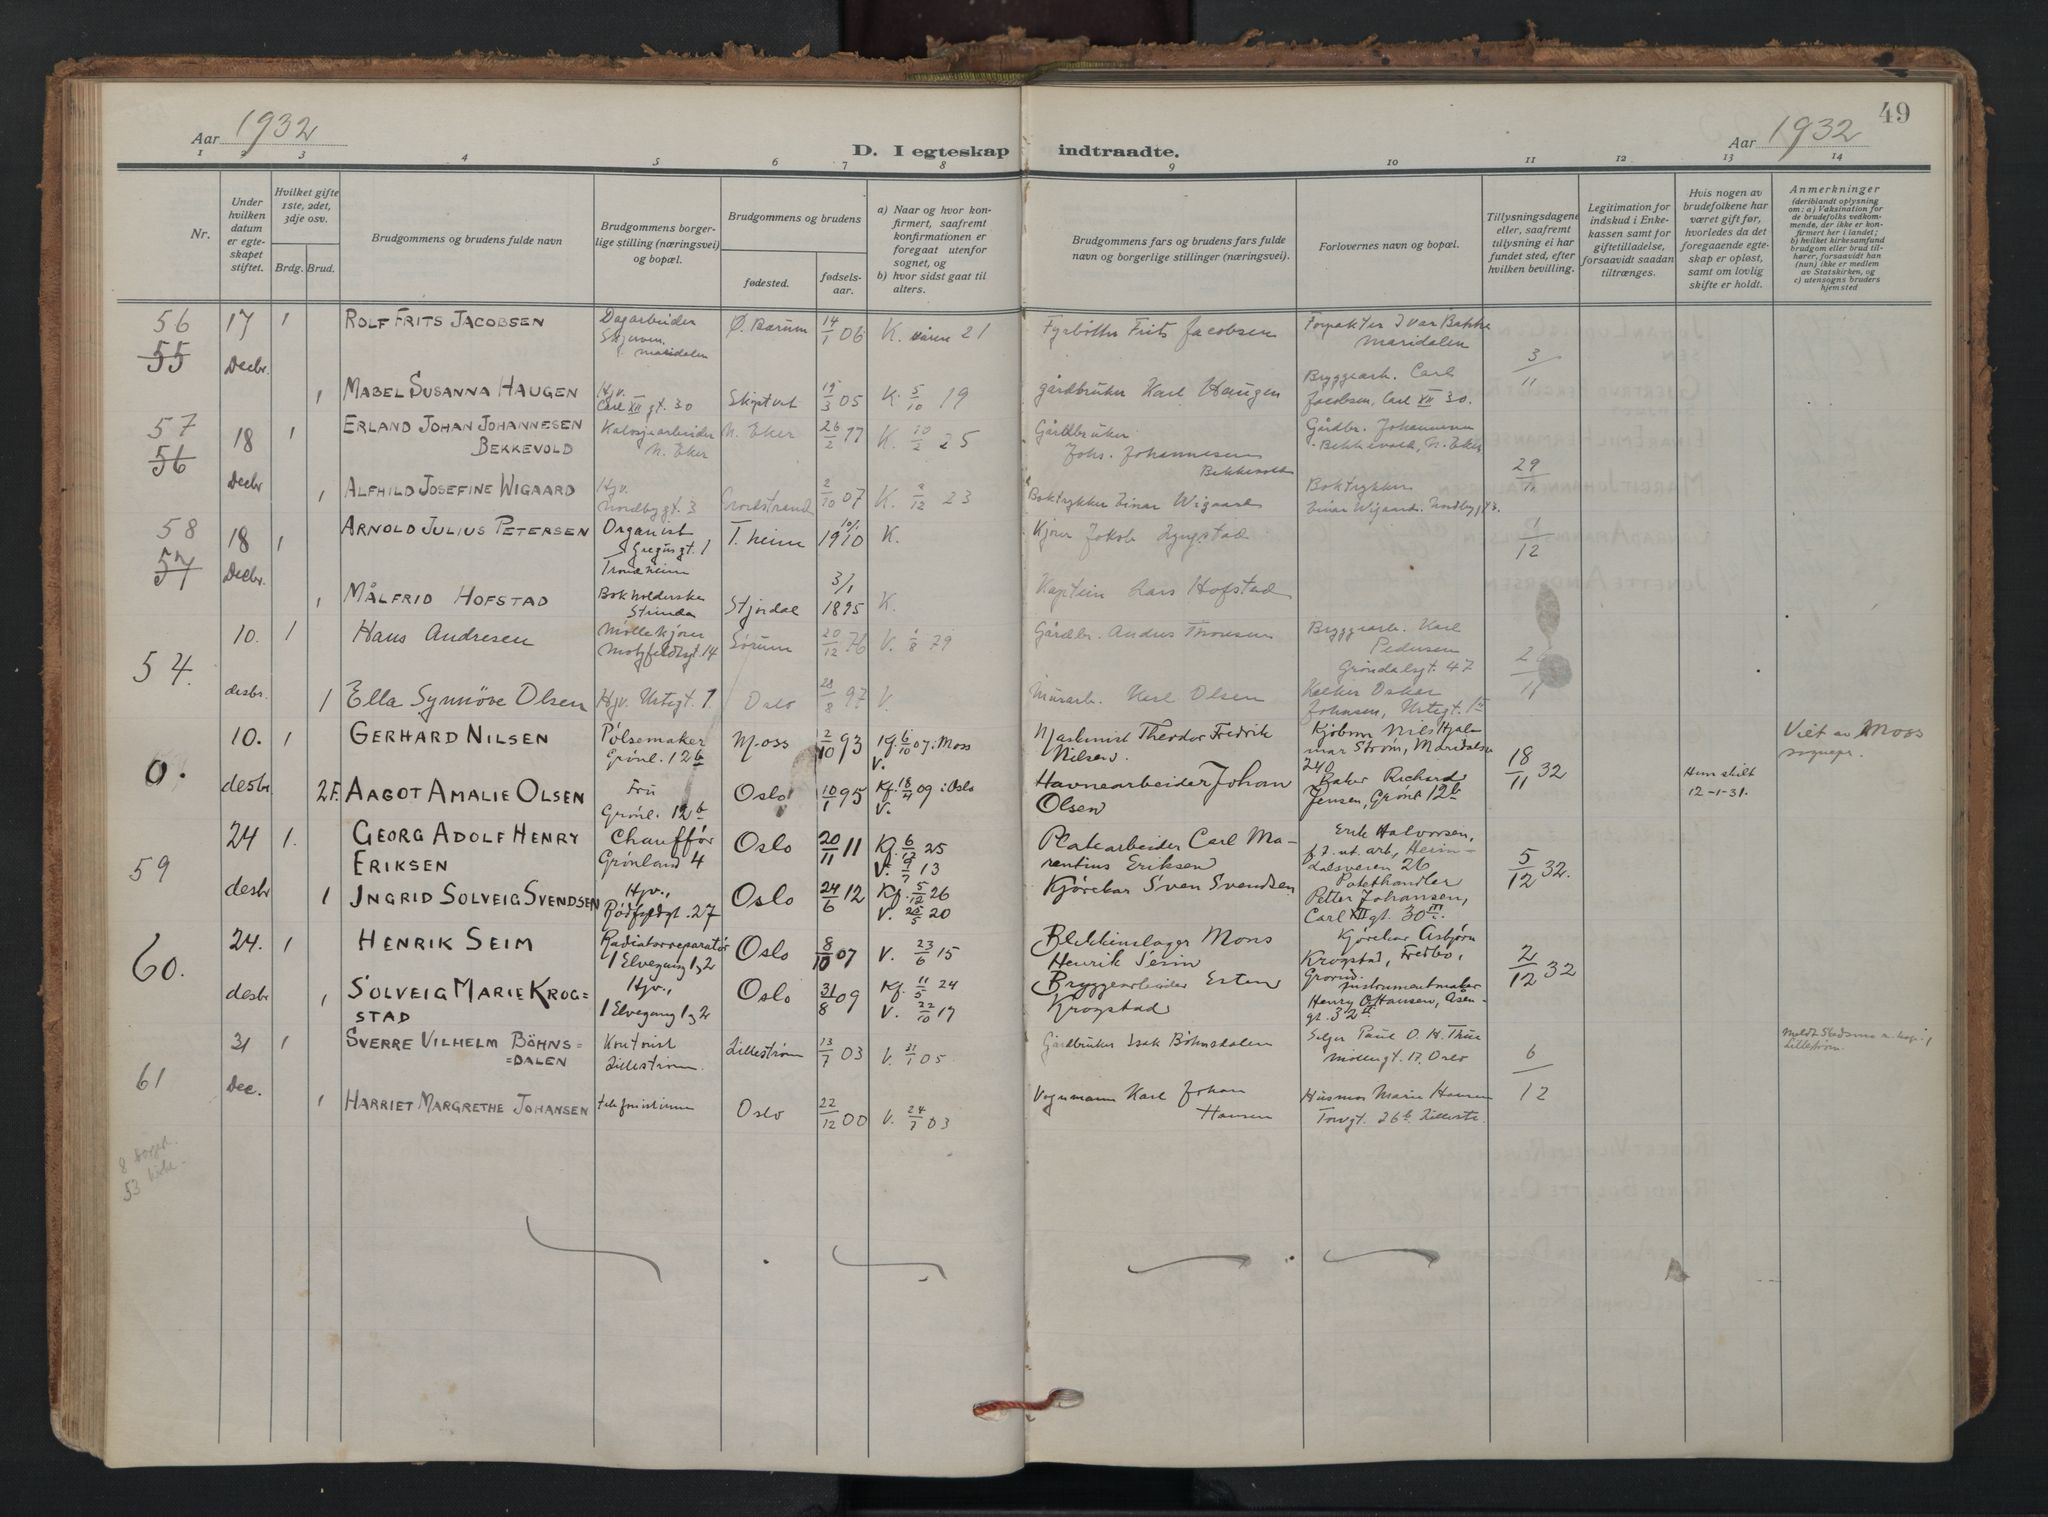 49
Aar 1932
Aar 1932
D. I egteskap indtraadte.
1 2 3 4 5 6 7 8 9 10 11 12 13 14
Nr.
Under hvilken datum er egteskapet stiftet.
Hvilket gifte 1ste, 2det, 3dje osv.
Brdg. Brud.
Brudgommens og brudens fulde navn
Brudgommens borgerlige stilling (næringsvei) og bopæl.
Brudgommens og brudens
fødested. fødselsaar.
a) Naar og hvor konfirmert, saafremt konfirmationen er foregaat utenfor sognet, og
b) hvor sidst gaat til alters.
Brudgommens fars og brudens fars fulde navn og borgerlige stillinger (næringsvei).
Forlovernes navn og bopæl.
Tillysningsdagene eller, saafremt tillysning ei har fundet sted, efter hvilken bevilling.
Legitimation for indskud i Enkekassen samt for giftetilladelse, forsaavidt saadan tiltrænges.
Hvis nogen av brudefolkene har været gift før, hvorledes da det foregaaende egteskap er opløst, samt om lovlig skifte er holdt.
Anmerkninger
(deriblandt oplysning om: a) Vaksination for de brudefolks vedkommende, der ikke er konfirmert her i landet; b) hvilket kirkesamfund brudgom eller brud tilhører, forsaavidt han (hun) ikke er medlem av Statskirken, og c) utensogns bruders hjemsted
56 55 17 Decbr. 1 ROLF FRITS JACOBSEN Dagarbeider Skjerven, Maridalen Ø. Bærum 14/1 06 K. 21 Fyrbøter Frits Jacobsen Forpakter Ivar Bakke Maridalen 3/11
1 MABEL SUSANNA HAUGEN Hjv. Carl XII gt. 30 Skiptvet 19/3 05 K. 5/10 19 gårdbruker Karl Haugen Bryggearb. Carl Jacobsen, Carl XII 30.
57 56 18 Decbr 1 ERLAND JOHAN JOHANNESEN BEKKEVOLD N. Eker N. Eker 26/2 97 K. 10/2 25 Gårdbruker Johs. Johannesen Bekkevold Gårdbr. Johannesen Bekkevold, N. Eker 29/11
1 ALFHILD JOSEFINE WIGAARD Hjv. Nordbygt. 3 Nordstrand 2/10 07 K. 2/12 23 Boktrykker Einar Wigaard Boktrykker Einar Wigaard. Nordbygt 3.
58 57 18 Decbr. 1 ARNOLD JULIUS PETERSEN Organist 1 Trondheim T.heim 10/1 1910 K. Kjører Jakob Lyngstad 1/12
1 MÅLFRID HOFSTAD Bokholderske Strinda Stjørdal 3/1 1895 K. Kaptein Lars Hofstad
54. 10. desbr. 1 Hans Andresen Møllekjører Motzfeldtsgt. 14 Sørum 20/12 76 V. 79 Gårdbr. Andres Thoresen Bryggearb. Karl Pedersen Grøndalsgt. 47 26/11
1 Ella Synnöve Olsen Hjv. Urtegt. 1 Oslo 28/8 97 V. Murarb. Karl Olsen Oskar Johnsen, Urtegt. 1
0. 10. desbr 1 GERHARD NILSEN Pølsemaker Grönl. 12b Moss 2/10 93 Kf. 6/10 07 i Moss V. Maskinist Theodor Fredrik Nilsen. Kjøbm Nils Hjalmar Strøm, Maridalsv 240 18/11 32 Viet av Moss sognepr.
2F. AAGOT AMALIE OLSEN Fru Grönl. 12b Oslo 10/1 95 Kf. 18/4 09 i Oslo V. Havnearbeider Johan Olsen Baker Richard Jensen, Grönl 12b Hun skilt 12-1-31.
59 24 desbr 1. GEORG ADOLF HENRY ERIKSEN Chauffør Grønland 4 Oslo 20/11 11 Kf. 6/12 25 V. 9/7 13 Platearbeider Carl Marentius Eriksen Erik Halvorsen, f.d. ut. arb, Heimdalsveien 26 5/12 32.
1 INGRID SOLVEIG SVENDSEN Hjv., Rødfyldgt. 27 Oslo 24/6 12 Kf. 5/12 26 V. 25/5 20 Kjørekar Sven Svendsen Potethandler Petter Johansen, Carl XII gt. 30 III.
60. 24. desbr 1 HENRIK SEIM Radiatorreparatør 1 Elvegang 1, 2 Oslo 8/10 07 V. 23/6 15 Blikkenslager Mons Henrik Seim Kjørekar Asbjørn Krogstad, Fredbo, Grorud. 2/12 32
1 SOLVEIG MARIE KROGSTAD Hjv., 1 Elvegang 1, 2 Oslo 31/8 09 Kf. 11/5 24 V. 22/10 17 Bryggearbeider Esten Krogstad Instrumentmaker Henry O. Hansen, Åsengt. 32 II
61 31 Dec. 1 SVERRE VILHELM BÖHNS=DALEN Kontorist Lillestrøm. Lillestrøm 13/7 03 V. 31/1 05 Gårdbruker Isak Böhnsdalen Selger Paul O. H. Thue Møllergt. 17, Oslo 6/12
1 HARRIET MARGRETHE JOHANSEN telefonistinne Oslo 22/12 00 V. 24/7 03 Vognmann Karl Johan Hansen Husmor Marie Hansen Torvgt. 26b. Lillestr.
8 borger.
53 kirke.